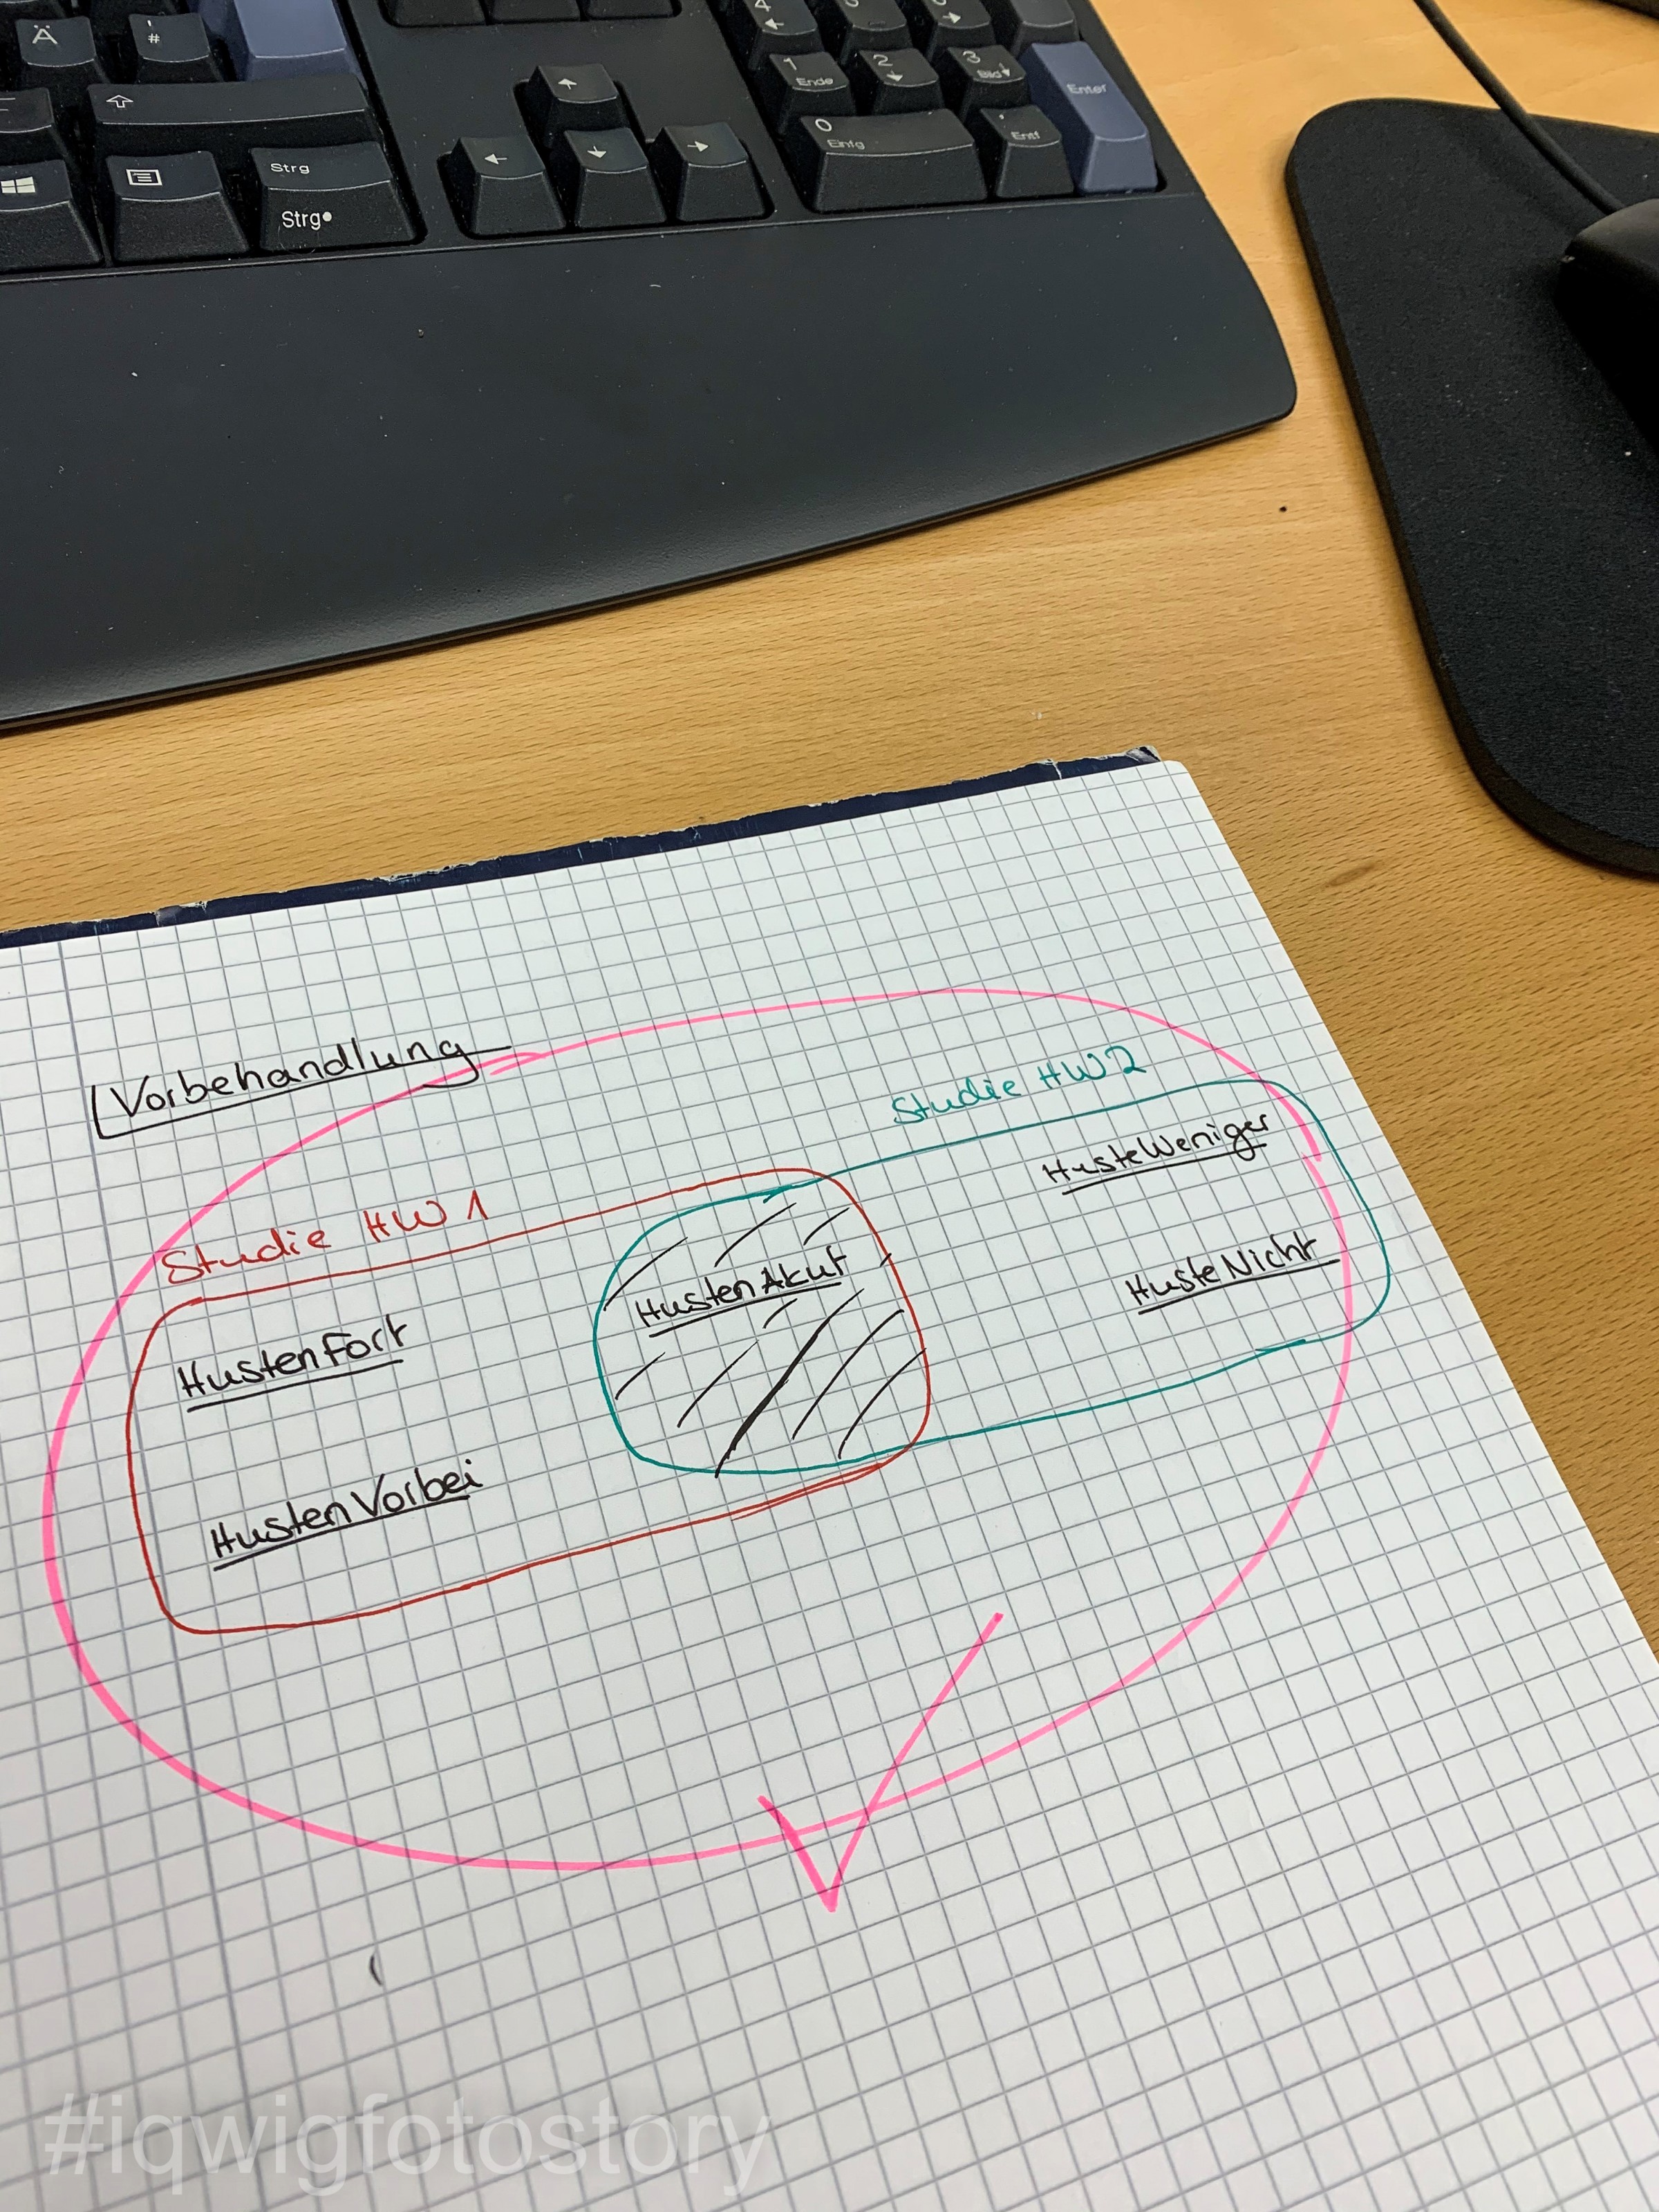 Ä
#
Strg
Strg
4
5
6
1
Ende
2
3
Bild
Enter
0
Einfg
,
Entf
Vorbehandlung
Studie HW2
HusteWeniger
Studie HW1
HustenAkut
HusteNicht
HustenFort
HustenVorbei
#iqwigfotostory